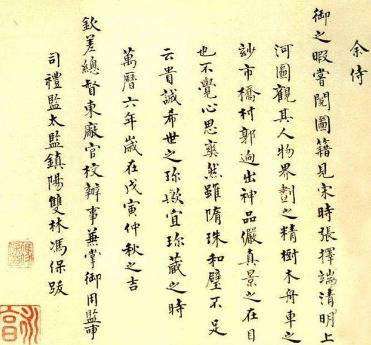 余侍
御之暇嘗閱圖籍見宋時張擇端清明上
河圖觀其人物界劃之精樹木舟車之
玅市橋村郭逈出神品儼真景之在目
也不覺心思爽然雖隋珠和璧不足
云貴誠希世之珍歟宜珍藏之時
萬曆六年歲在戊寅仲秋之吉
欽差總督東廠官校辦事兼掌御用監事
司禮監太監鎮陽雙林馮保跋